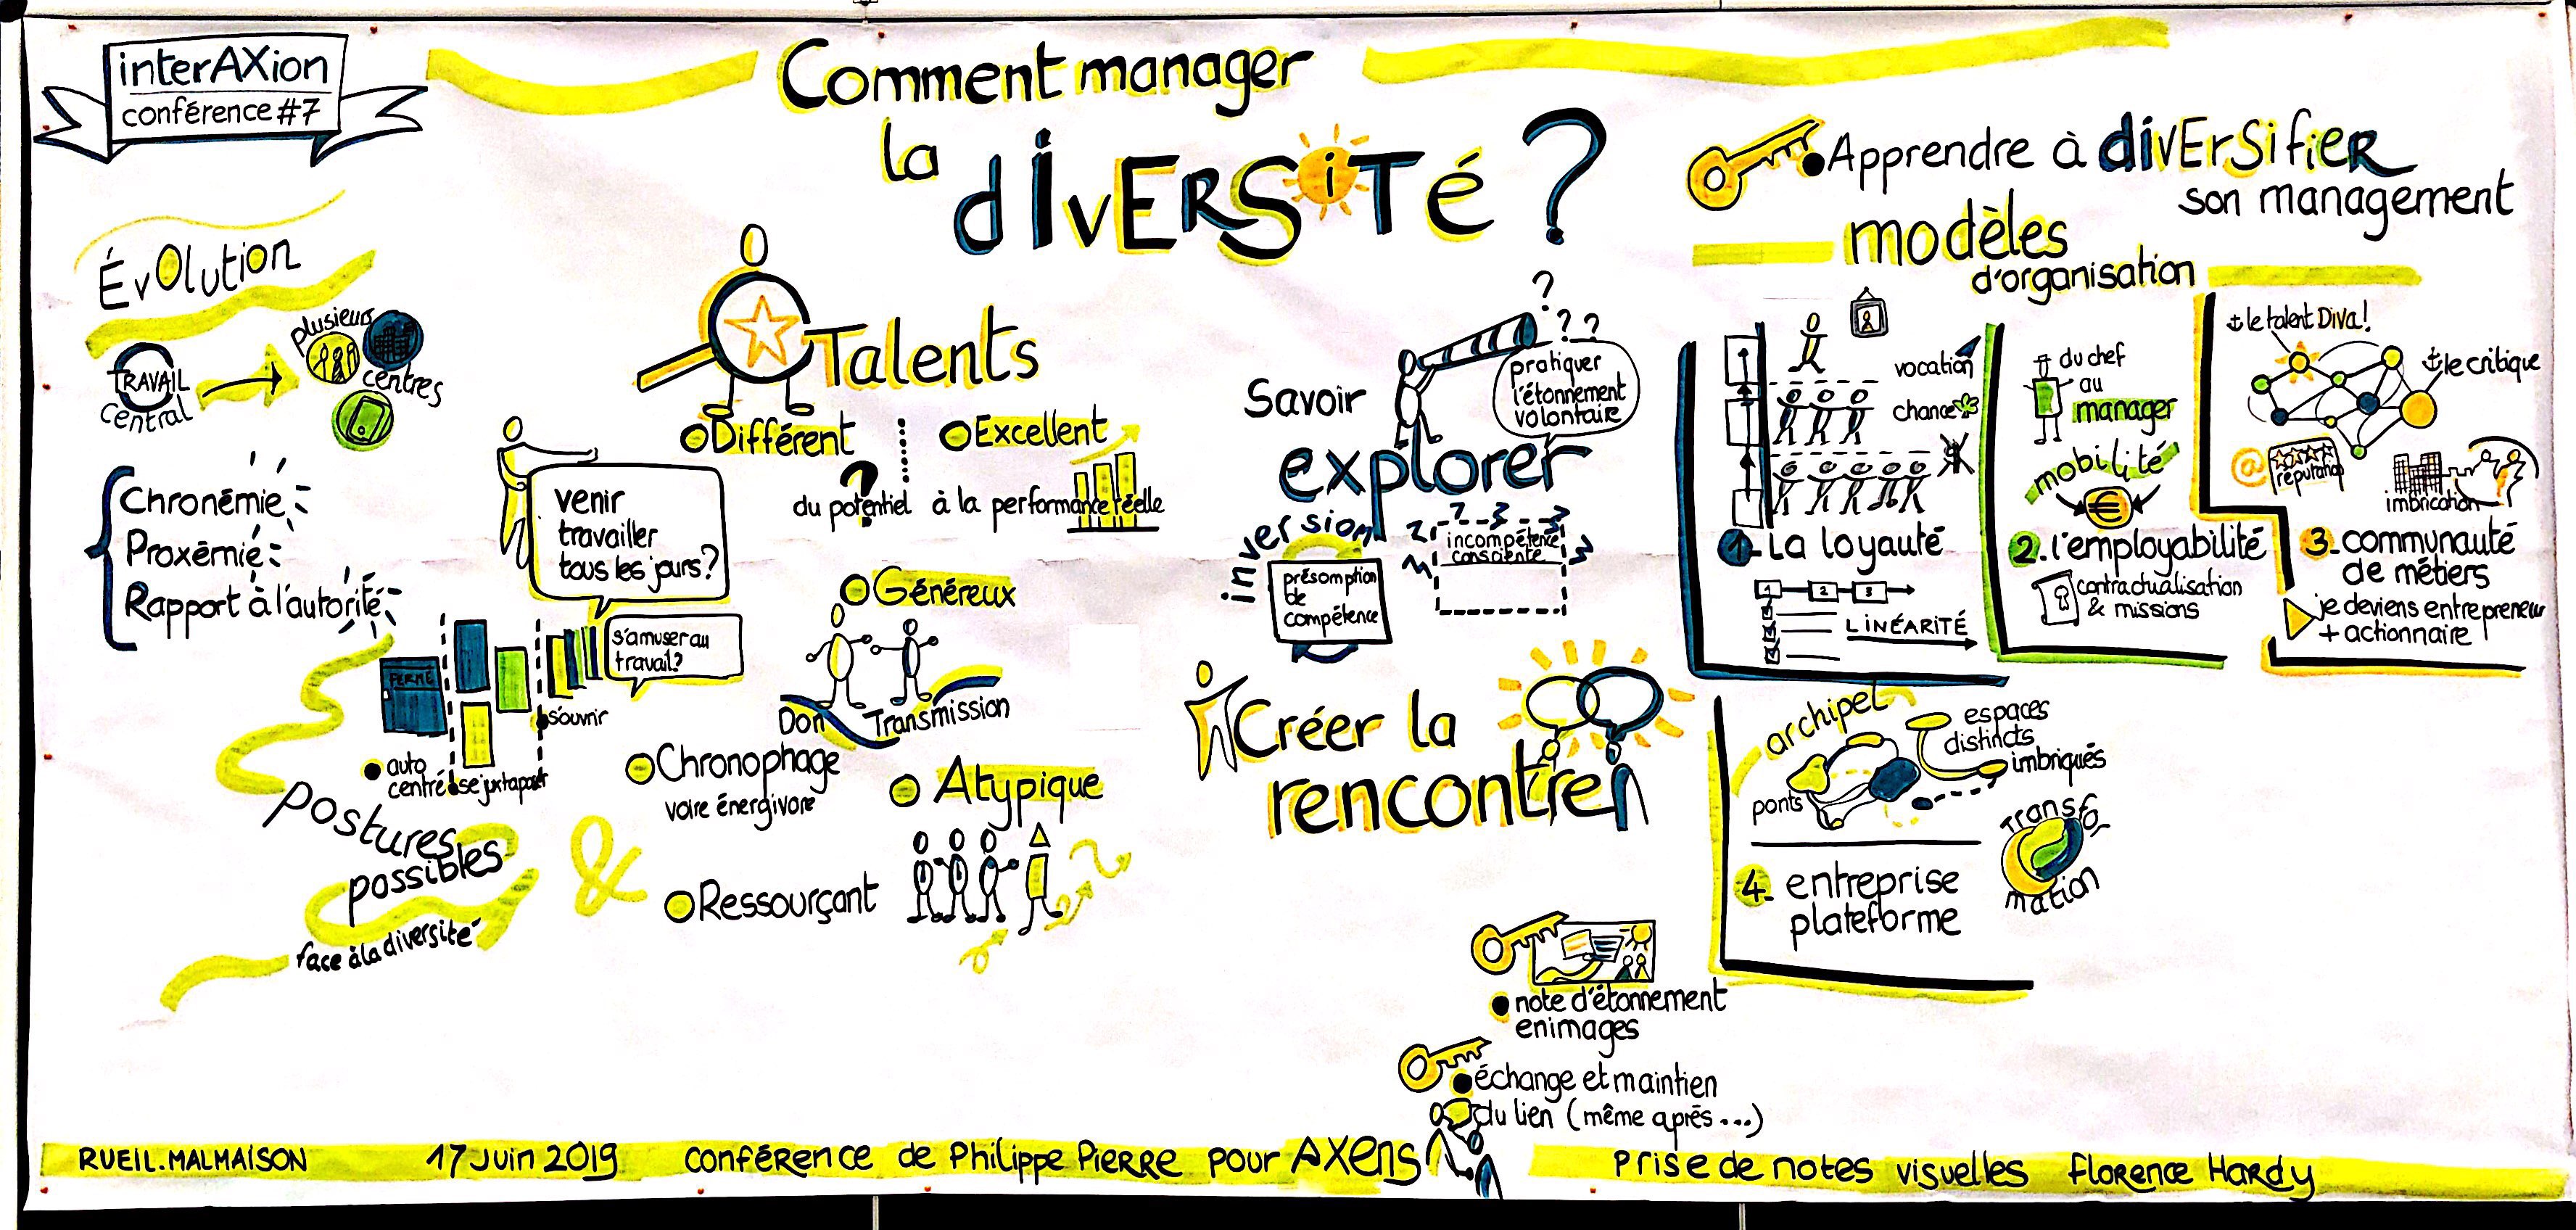 interAXion
conférence #7
Comment manager
la
diVERSiTé ?
Évolution
TRAVAIL
central
plusieurs
centres
Chronémie
Proxémie
Rapport à l'autorité
venir
travailler
tous les jours?
s'amuser au
travail?
FERMÉ
s'ouvrir
auto
centré
se juxtaposer
postures
possibles
face à la diversité
&
Talents
Différent
Excellent
?
du potentiel à la performance réelle
Généreux
Don
Transmission
Chronophage
voire énergivore
Atypique
Ressourçant
Savoir
explorer
? ? ?
pratiquer
l'étonnement
volontaire
inversion
présomption
de
compétence
incompétence
consciente
Créer la
rencontre
note d'étonnement
en images
échange et maintien
du lien (même après ...)
Apprendre à diVErSifiER
son management
modèles
d'organisation
vocation
chance
1. La loyauté
1 2 3
LiNÉARITÉ
du chef
au
manager
mobilité
€
2. l'employabilité
contractualisation
& missions
le talent Diva!
le critique
@
réputation
imbrication
3. communauté
de métiers
je deviens entrepreneur
+ actionnaire
archipel
ponts
espaces
distincts
imbriqués
Transfo
mation
4. entreprise
plateforme
RUEIL.MALMAISON
17 Juin 2019
conféRence de Philippe PieRRe pour AXens
Prise de notes visuelles floRence HaRdy